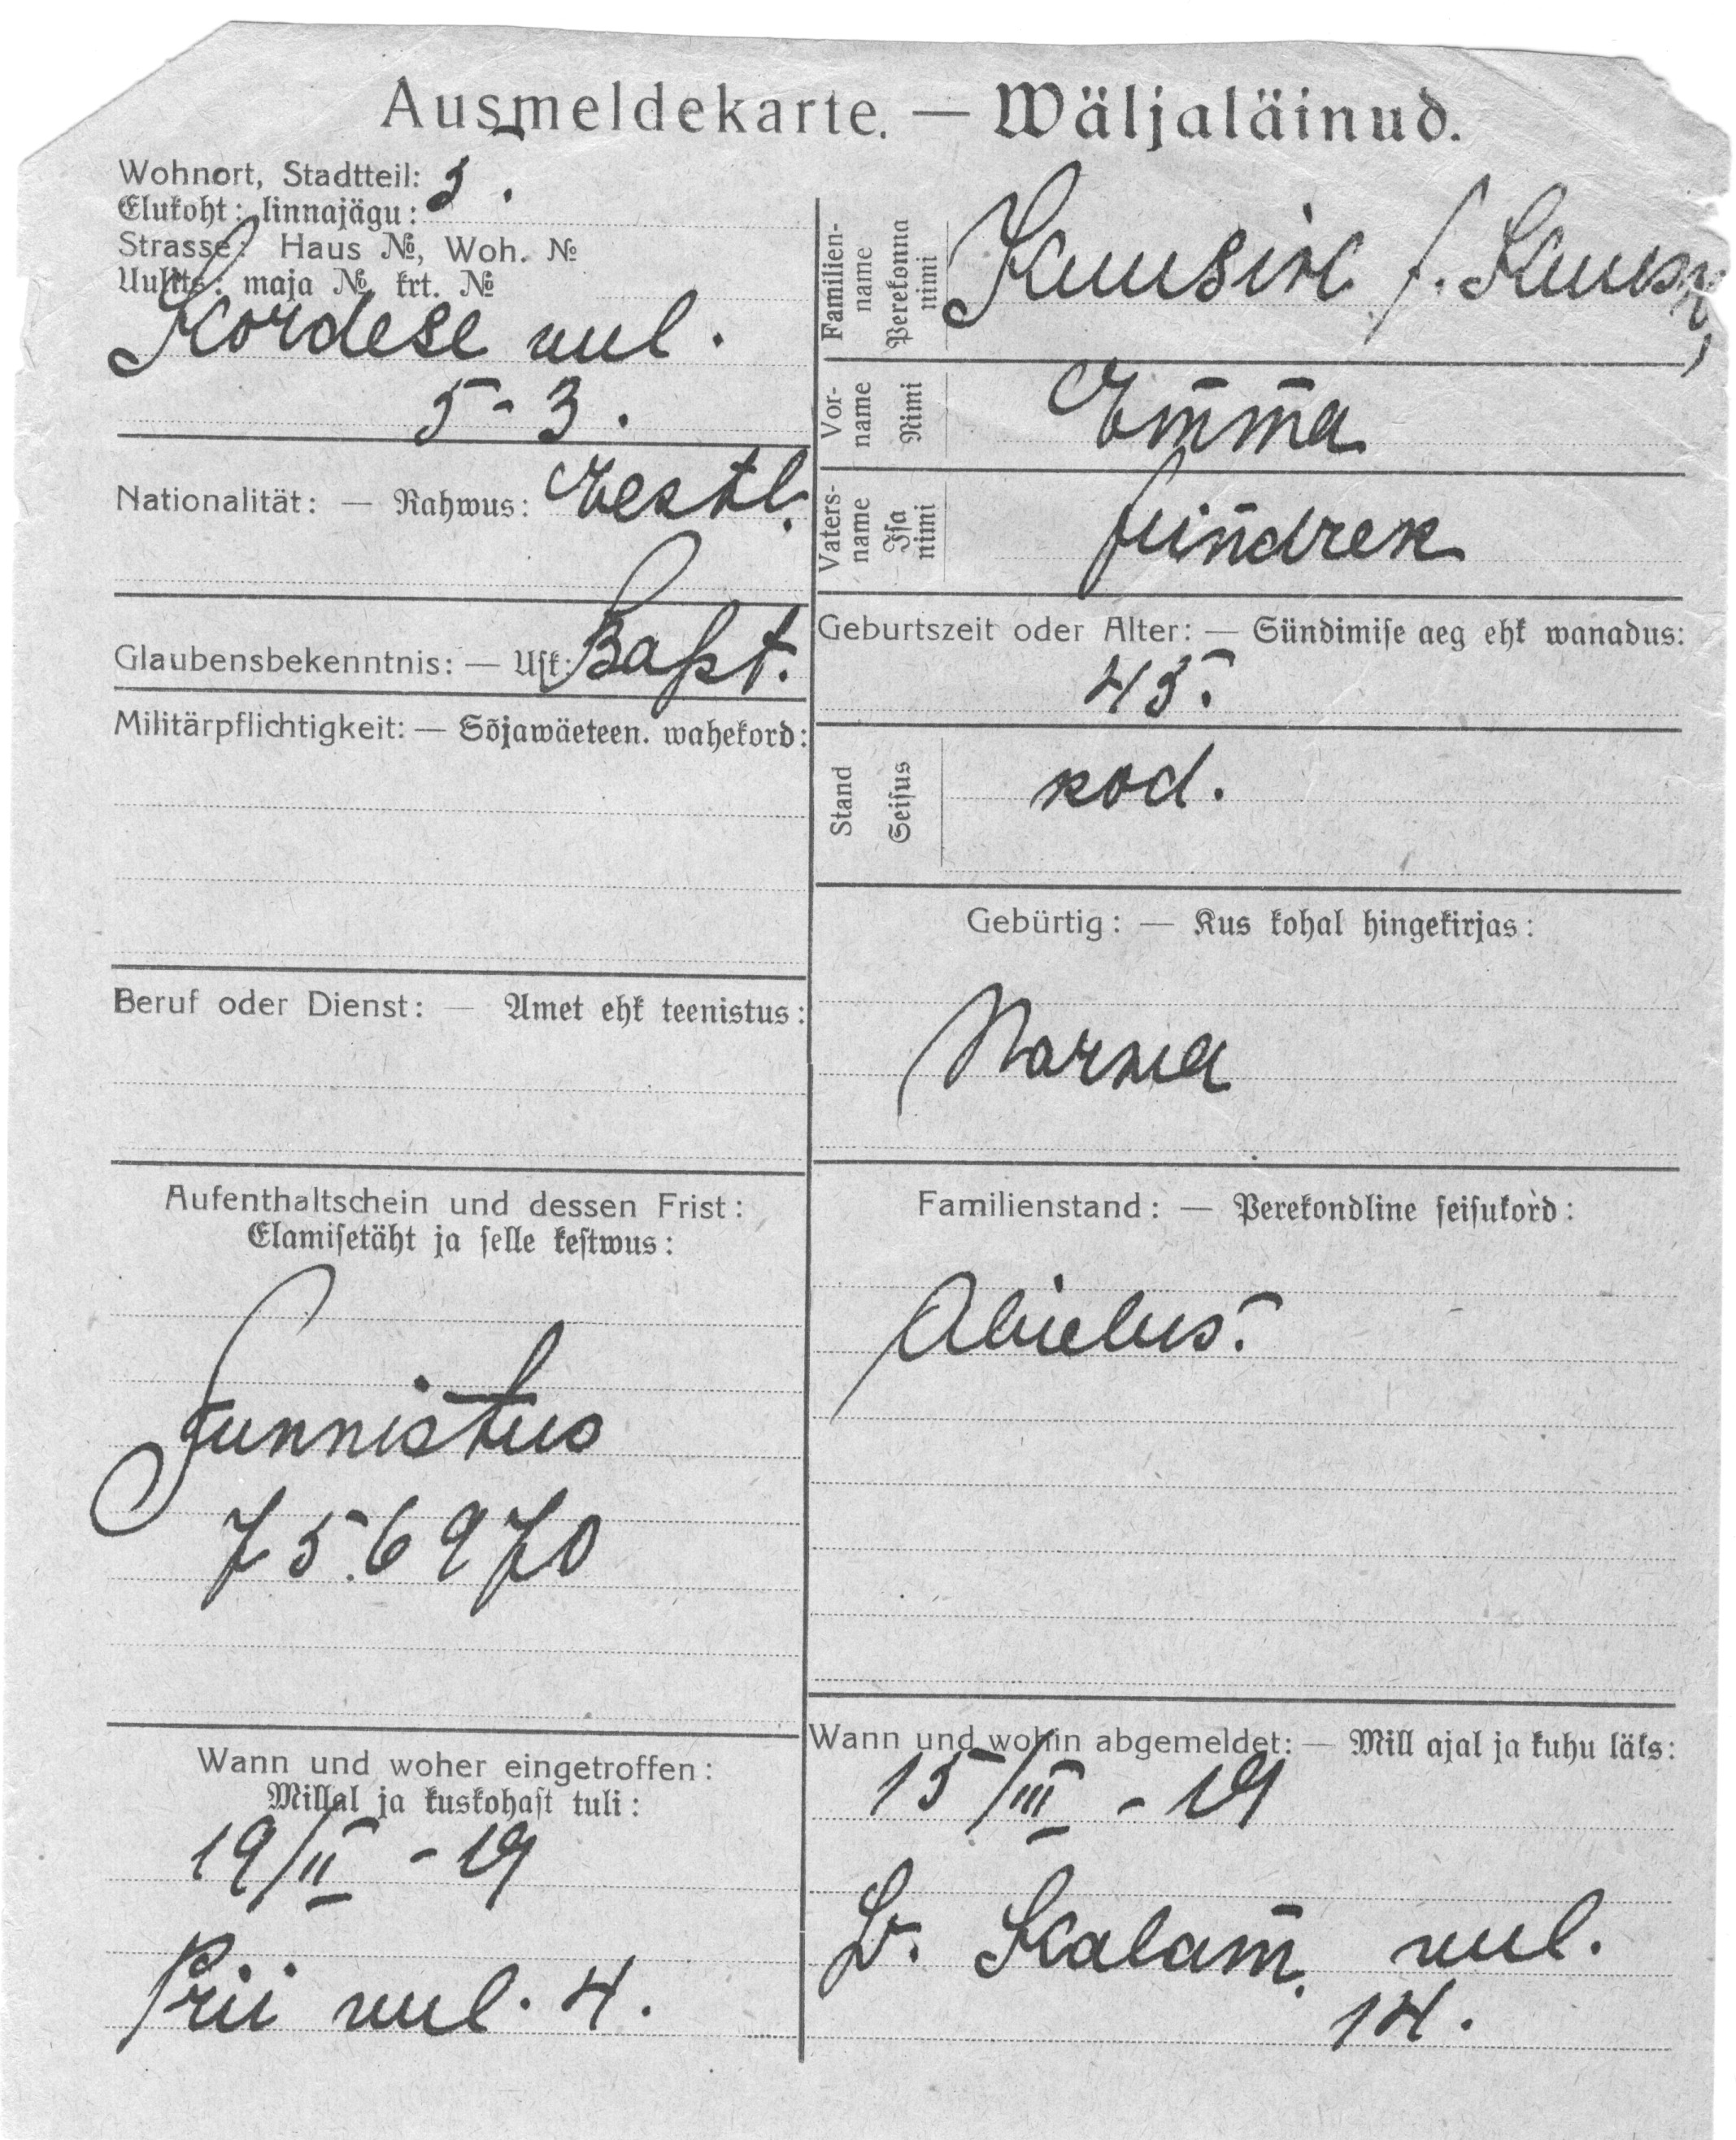 Ausmeldekarte. — Wäljaläinud.
Wohnort, Stadtteil: 5.
Elukoht: linnajägu:
Strasse: Haus №, Woh. №
Uulits: maja № krt. №
Kordese uul.
5-3.
Nationalität: — Rahwus: Eestl.
Glaubensbekenntnis: — Usk: Bapt.
Militärpflichtigkeit: — Sõjawäeteen. wahekord:
Beruf oder Dienst: — Amet ehk teenistus:
Aufenthaltschein und dessen Frist:
Elamisetäht ja selle kestwus:
Tunnistus
756970
Wann und woher eingetroffen:
Millal ja kuskohast tuli:
19/II - 19
Prii uul. 4.
Familien-
name
Perekonna
nimi
Vor-
name
Nimi
Emma
Vaters-
name
Isa
nimi
Hindrek
Geburtszeit oder Alter: — Sündimise aeg ehk wanadus:
45.
Stand
Seisus
kod.
Gebürtig: — Kus kohal hingekirjas:
Narwa
Familienstand: — Perekondline seisukord:
Abielus.
Wann und wohin abgemeldet: — Mill ajal ja kuhu läks:
15/III - 19
Kalam. uul.
14.